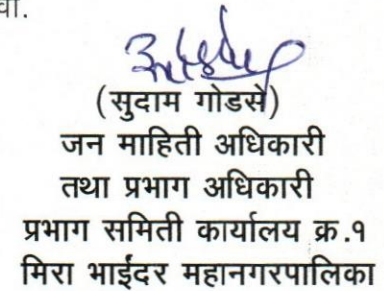 वा.
(सुदाम गोडसे)
जन माहिती अधिकारी
तथा प्रभाग अधिकारी
प्रभाग समिती कार्यालय क्र.१
मिरा भाईंदर महानगरपालिका